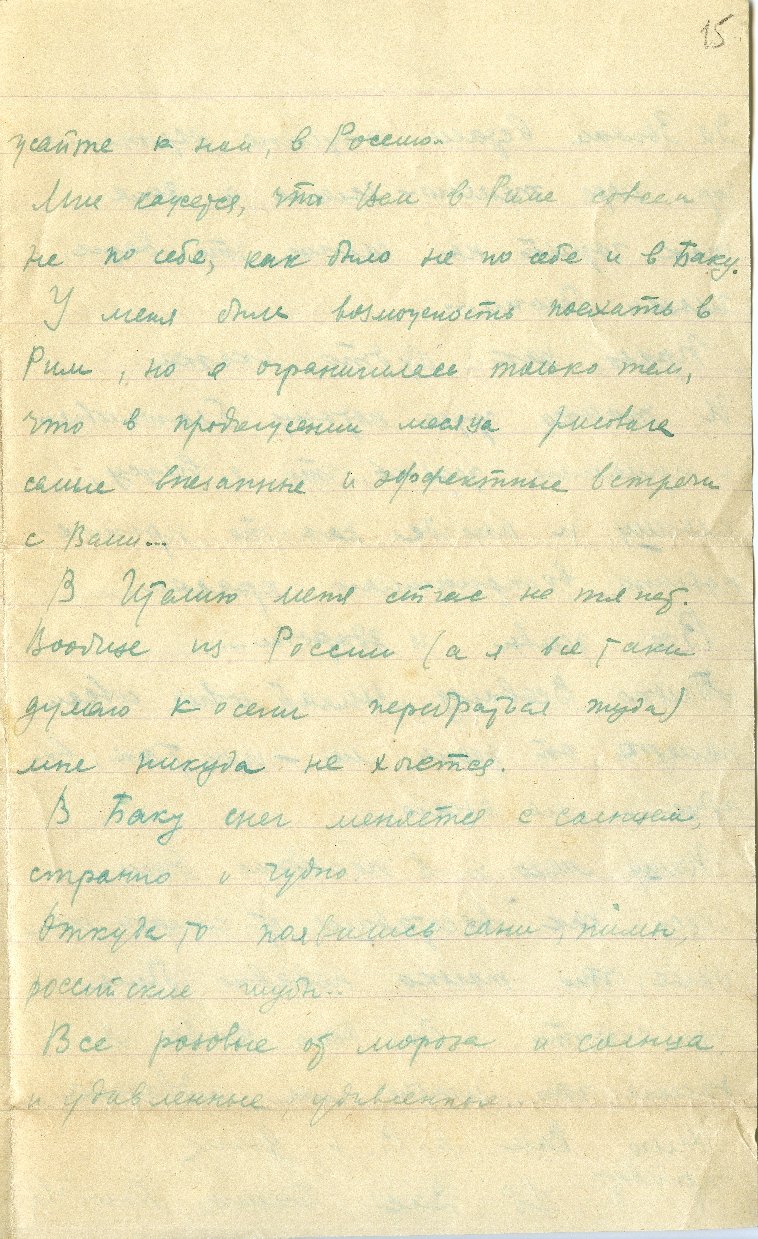 15
усайте к ней, в Россию.
Мне кажется, что Вам в Риме совсем
не по себе, как было не по себе и в Баку.
У меня была возможность поехать в
Рим, но я ограничилась только тем,
что в продолжении месяца рисовала
самые внезапные и эффектные встречи
с Вами...
В Италию меня сейчас не тянет.
Вообще из России (а я все таки
думаю к осени перебраться туда)
мне никуда не хочется.
В Баку снег меняется с солнцем,
странно и чудно.
Откуда то появились сани, пимы,
российские шубы.
Все розовые от мороза и солнца
и удивленные, удивленные...